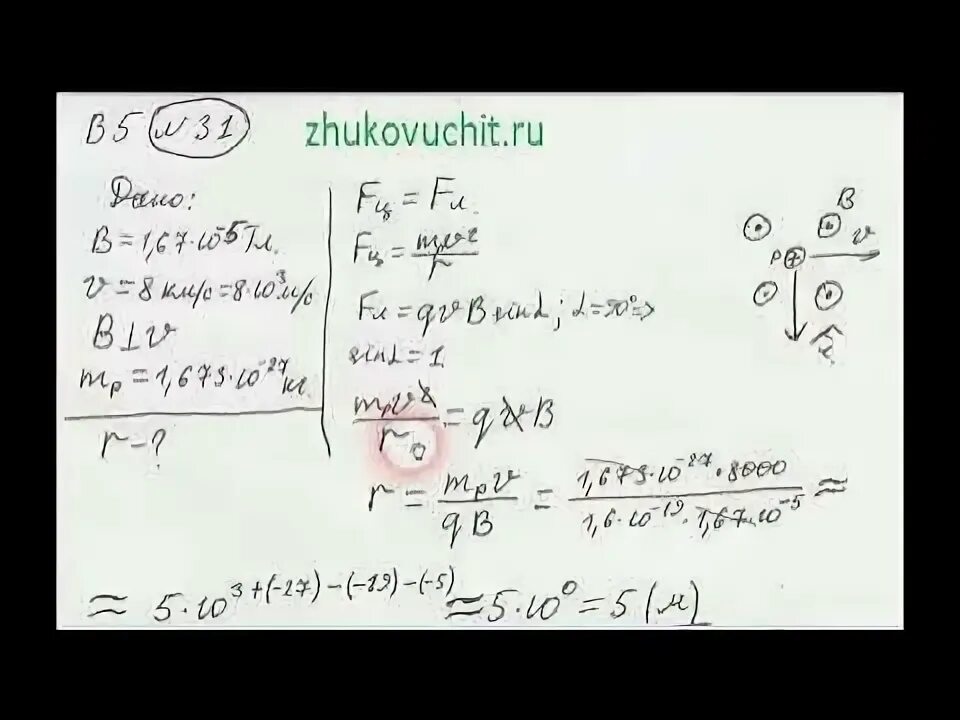 В5 №31
zhukovuchit.ru
Дано:
B = 1,67·10⁻⁵ Тл.
v = 8 км/с = 8·10³ м/с
B⊥v
mₚ = 1,673·10⁻²⁷ кг.
r - ?
Fц = Fл.
Fц = mₚv²/r
Fл = qvB sinα; α=90° =>
sinα = 1
mₚv²/r = qvB
r = mₚv/qB = 1,673·10⁻²⁷·8000/1,6·10⁻¹⁹·1,67·10⁻⁵ ≈
≈ 5·10³⁺⁽⁻²⁷⁾⁻⁽⁻¹⁹⁾⁻⁽⁻⁵⁾ ≈ 5·10⁰ = 5 (м)
B
v
p